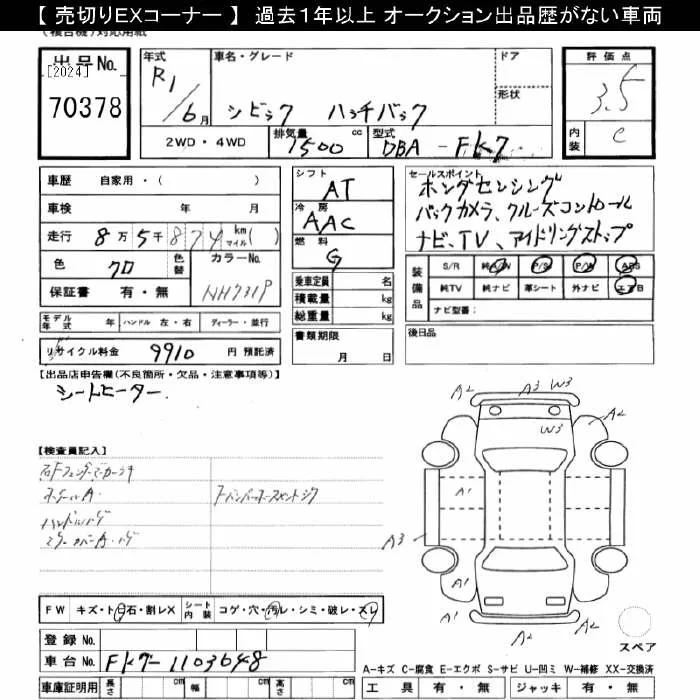 【 売切りEXコーナー 】 過去1年以上 オークション出品歴がない車両
出品No.
[2024]
70378
年式
R1/6月
車名・グレード
シビック ハッチバック
ドア
形状
評価点
3.5
内装
C
2WD・4WD
排気量
1500 cc
型式
DBA-FK7
車歴 自家用・( )
車検 年 月
走行 8万5千874 km マイル( )
色 クロ
色替
カラーNo.
NH731P
保証書 有・無
シフト
AT
冷房
AAC
燃料
G
乗車定員 名
積載量 kg
総重量 kg
書類期限
月 日
セールスポイント
ホンダセンシング
バックカメラ、クルーズコントロール
ナビ、TV、アイドリングストップ
装備品
S/R 純A/W P/S P/W ABS
純TV 純ナビ 革シート 外ナビ エアB
ナビ型番:
後日品
モデル年式 年 ハンドル 左・右 ディーラー・並行
リサイクル料金 9910 円 預託済
【出品店申告欄(不良箇所・欠品・注意事項等)】
シートヒーター.
【検査員記入】
ホイールA.
ハンドルハゲ
ミラーカバーA・ハゲ
FW キズ・ト 石・割レX
シート内装 コゲ・穴・汚レ・シミ・破レ・スレ
A2 A3 W3 A2
W3
A1 A1
A3
A1 A2
A1 A2
スペア
登録 No.
車台 No. FK7-1103648
車庫証明用 長さ cm 幅 cm 高さ cm
A-キズ C-腐食 E-エクボ S-サビ U-凹ミ W-補修 XX-交換済
工具 有・無 ジャッキ 有・無